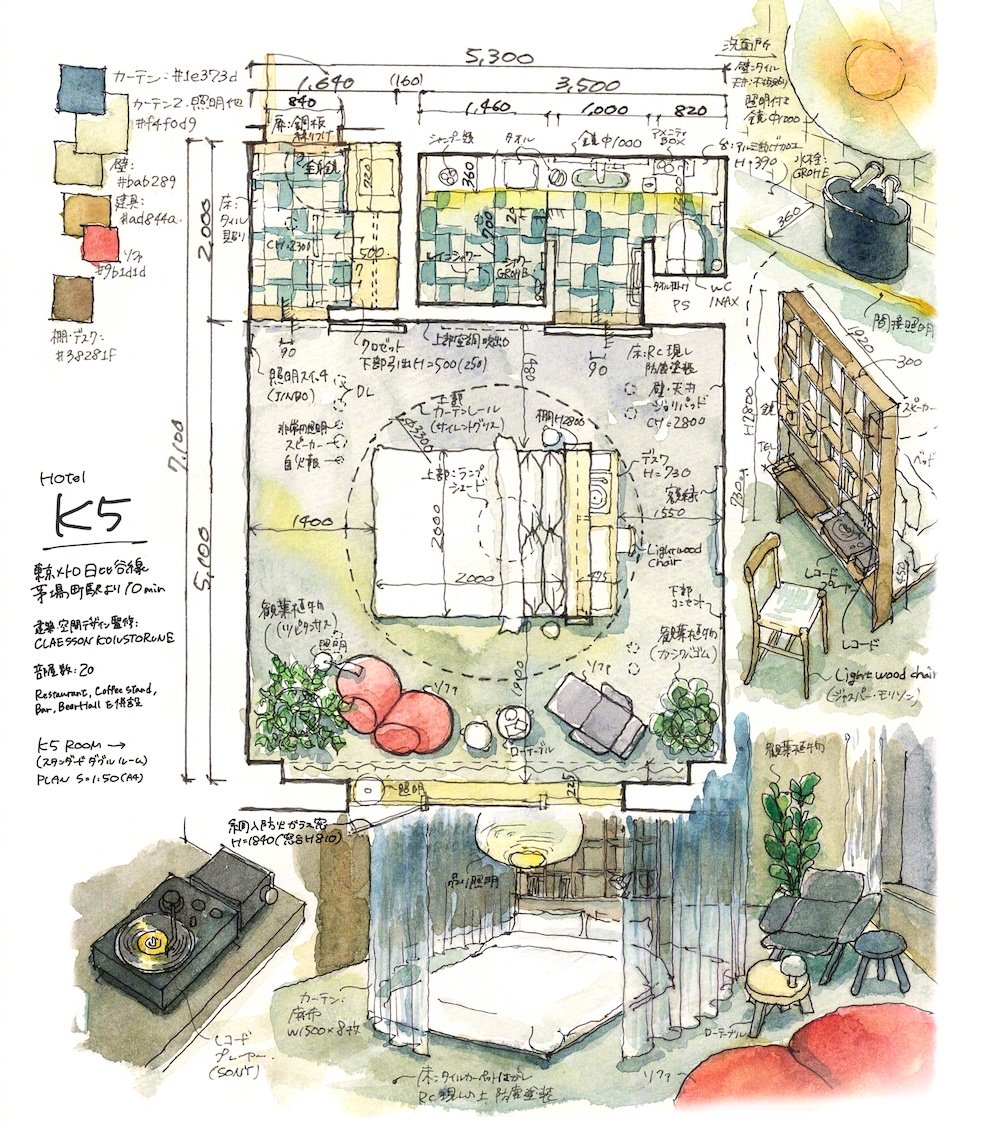 カーテン:#1e373d
カーテン2.照明他
#f4f0d9
壁:
#bab289
建具:
#ad844a
ソファ
#9b1d1d
棚・デスク:
#38281f
5,300
1,640
(160)
3,500
840
1,460
1,000
820
扉:銅板
シャンプー類
タオル
鏡φ1000
アメニティ
BOX
H=390
360
720
床:
タイル
貼り
2,000
CH=2300
500
レインシャワー
シャワー
GROHE
タオル掛け
PS
WC
INAX
洗面所
壁:タイル
照明付き
鏡φ1000
水栓:
GROHE
360
間接照明
90
照明スイッチ
(JINBO)
DL
クロゼット
下部引出H=500(250)
上部空調吹出口
480
90
床:RC現し
防塵塗装
壁・天井
ジョリパッド
CH=2800
非常用照明
スピーカー
自火報
上部
カーテンレール
(サイレントグリス)
φ3300
棚H2800
上部:ランプ
シェード
デスク
H=730
額縁
1550
1400
2000
2000
425
Lightwood
chair
下部
コンセント
7,100
5,100
観葉植物
照明
ソファ
1920
ローテーブル
ソファ
観葉植物
(カシワバゴム)
照明
225
網入防火ガラス窓
H=1840(窓台H810)
1920
300
H2800
鏡
TEL
730
スピーカー
ベッド
450
レコード
プレイヤー
レコード
Light wood chair
(ジャスパー・モリソン)
HOTEL
K5
東京メトロ日比谷線
茅場町駅より10min
建築・空間デザイン監修:
CLAESSON KOIVISTO RUNE
部屋数:20
Restaurant, Coffee stand,
Bar, Beer Hall を併設
K5 ROOM →
(スタンダードダブルルーム)
PLAN S=1:50(A4)
レコード
プレーヤー
(SONY)
吊り照明
カーテン:
麻布
W1500×8枚
床:タイルカーペットはがし
RC現しの上、防塵塗装
観葉植物
ローテーブル
ソファ